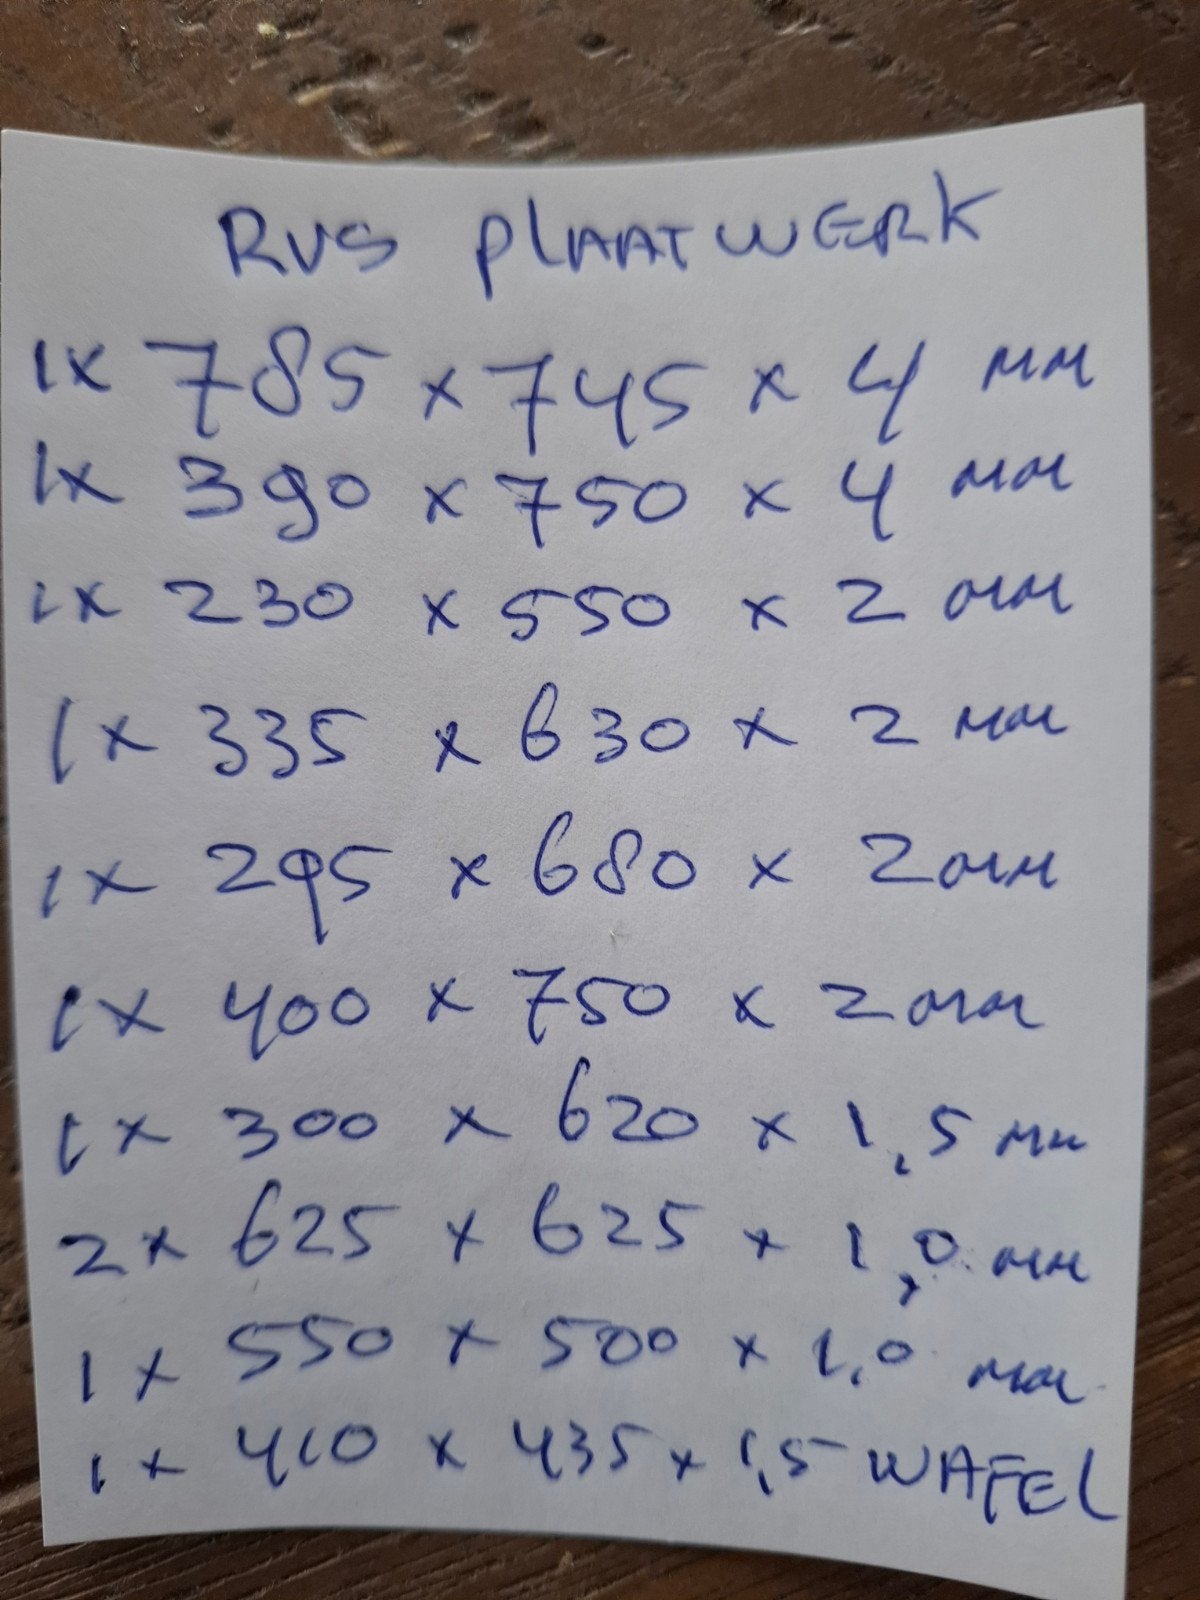 RVS PLAATWERK
1x 785 x 745 x 4 mm
1x 390 x 750 x 4 mm
1x 230 x 550 x 2 mm
1x 335 x 630 x 2 mm
1x 295 x 680 x 2 mm
1x 400 x 750 x 2 mm
1x 300 x 620 x 1,5 mm
2x 625 x 625 x 1,0 mm
1x 550 x 500 x 1,0 mm
1x 410 x 435 x 1,5 WAFEL